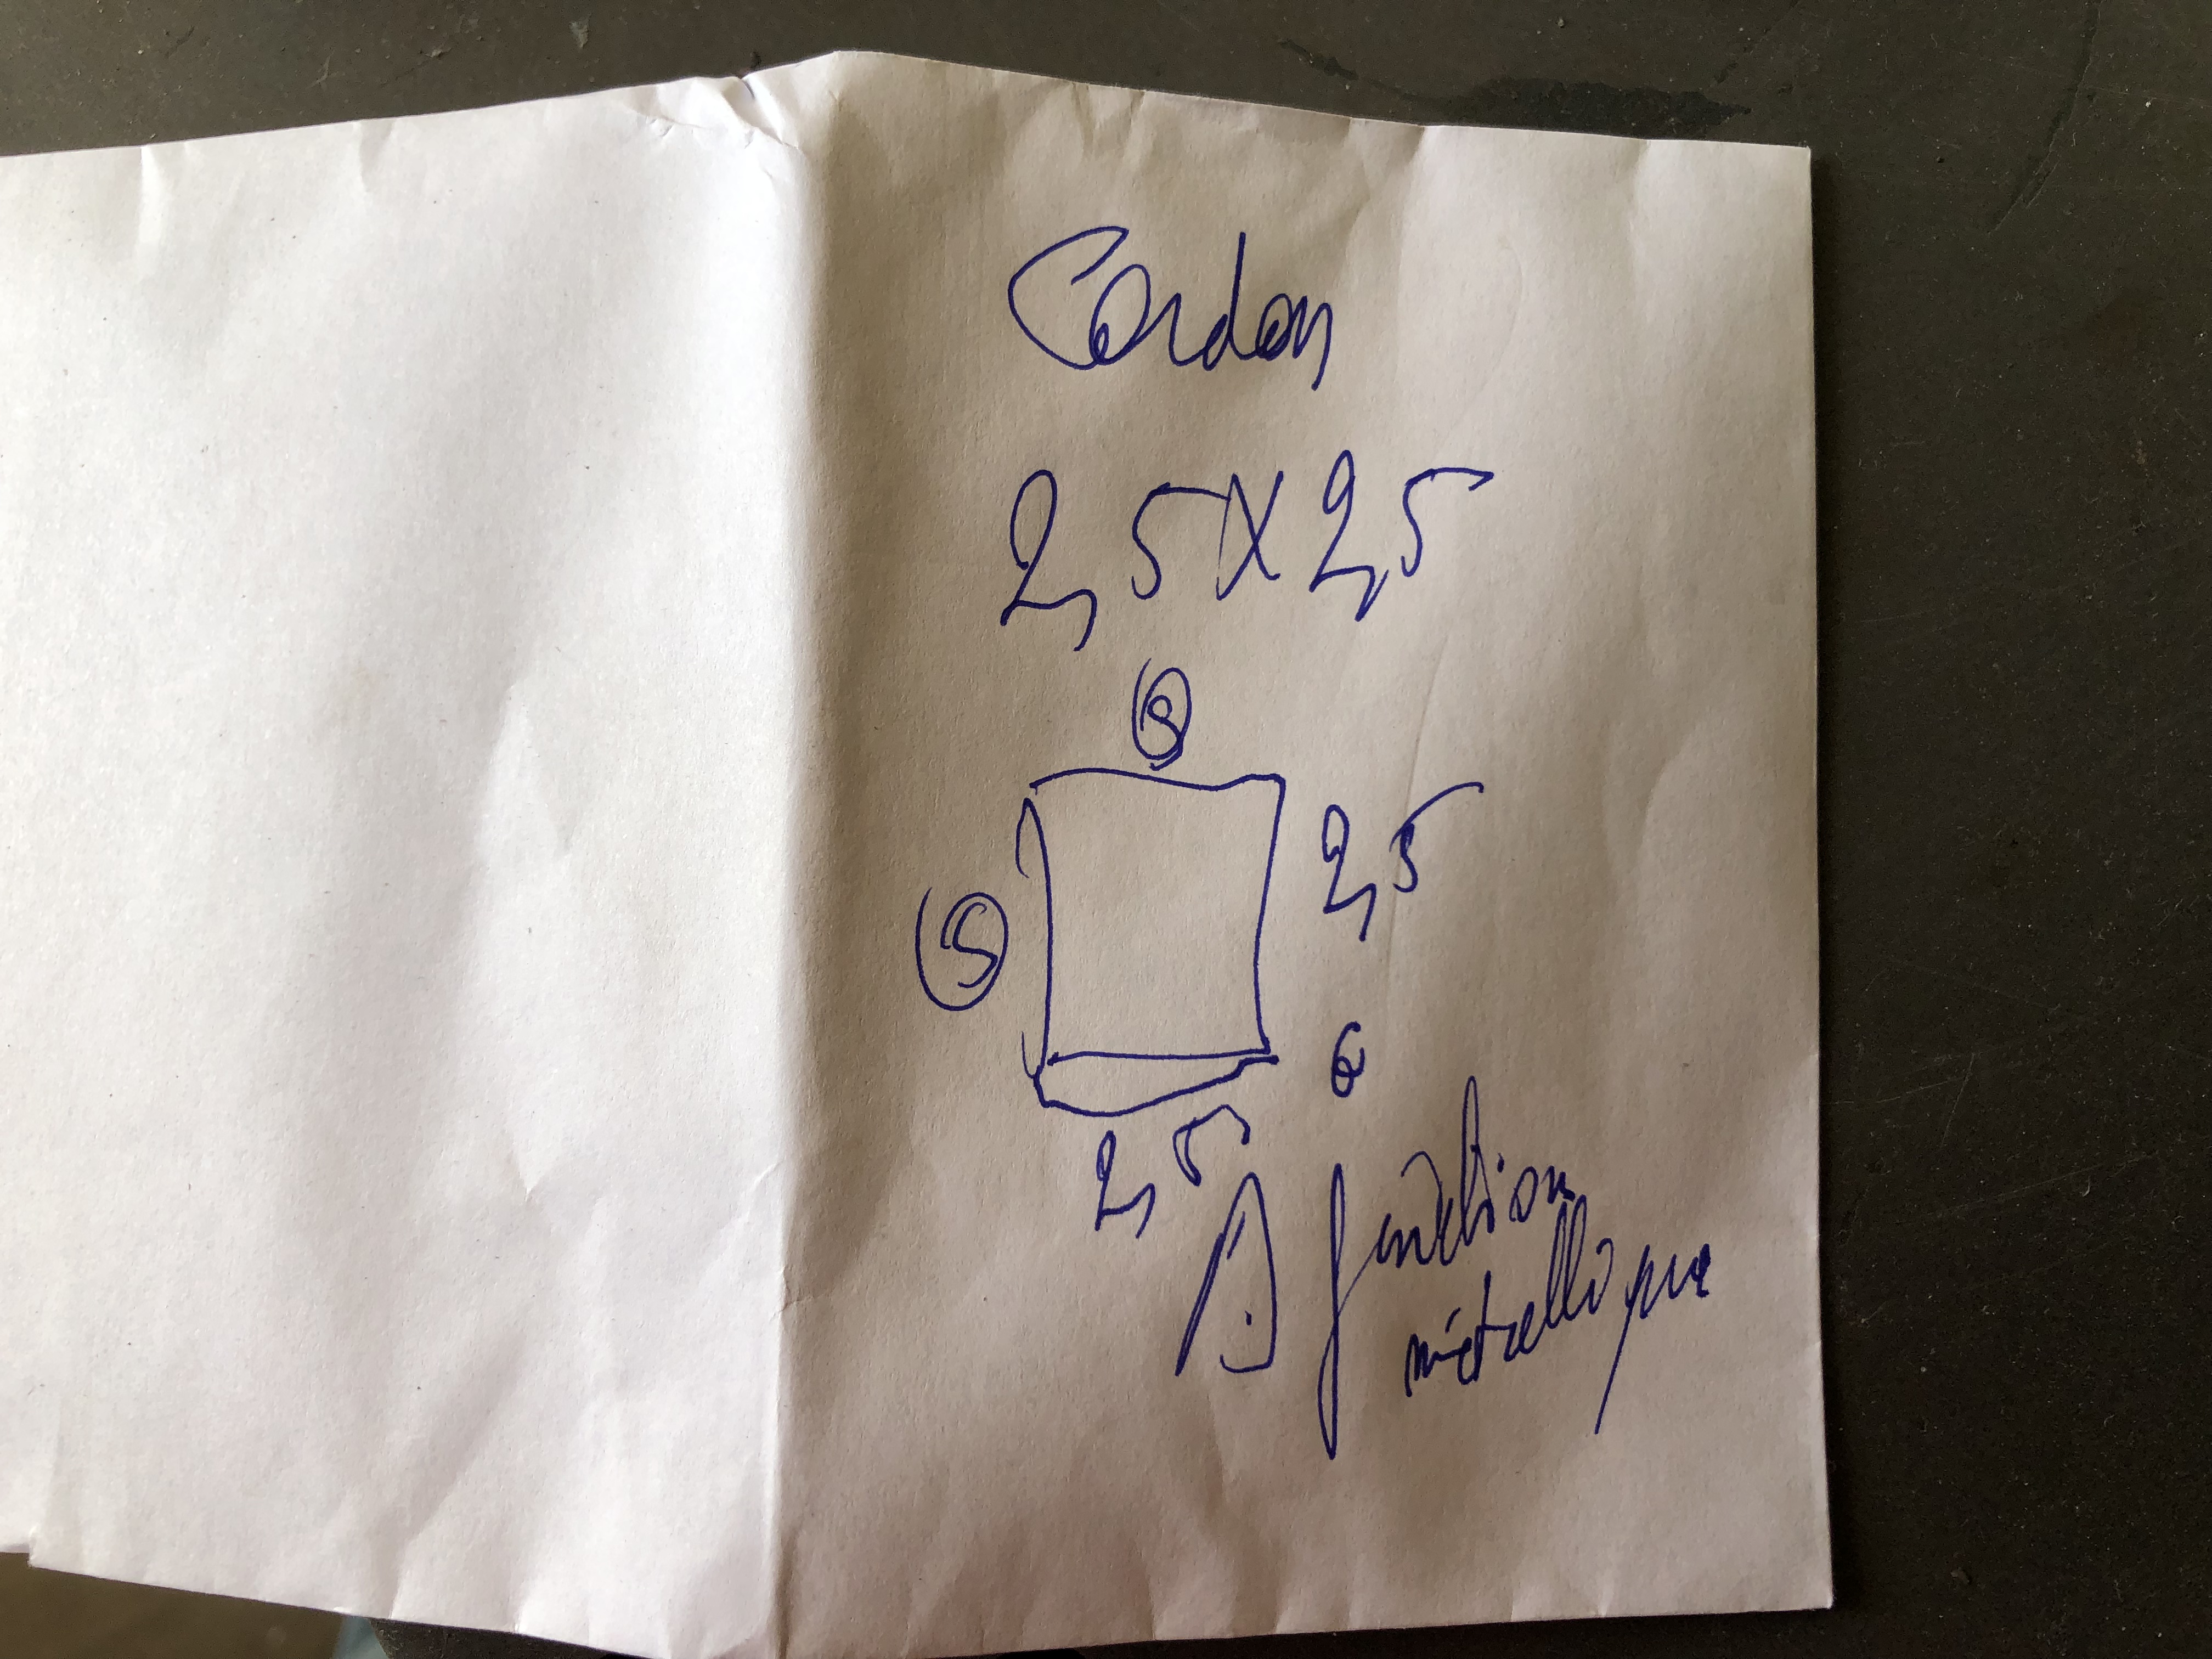 Cordon
2,5 X 2,5
S
2,5
S
6
2,5
A jonction
métallique